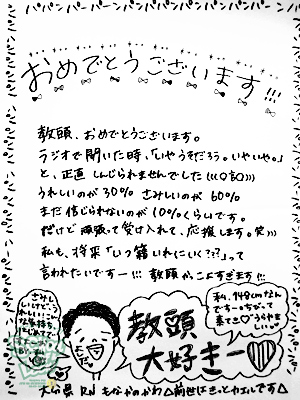 パパンパーンパンパンパーンパンパンパン
おめでとうございます!!!
教頭、おめでとうございます。
ラジオで聞いた時、「いやうそだろう。いやいや。」
と、正直しんじられませんでした(((0言0)))
うれしいのが30% さみしいのが 60%
まだ信じられないのが 10%くらいです。
だけど頑張って受け入れて、応援します。笑)))
私も、将来「いつ籍いれにいく???」って
言われたいですー!!! 教頭かっこよすぎます!!!
教頭
大好きー♡
私、148cmなん
ですーっちっちゃくて
大分県 RN もなかのかわ△前世はきっとカエルです△